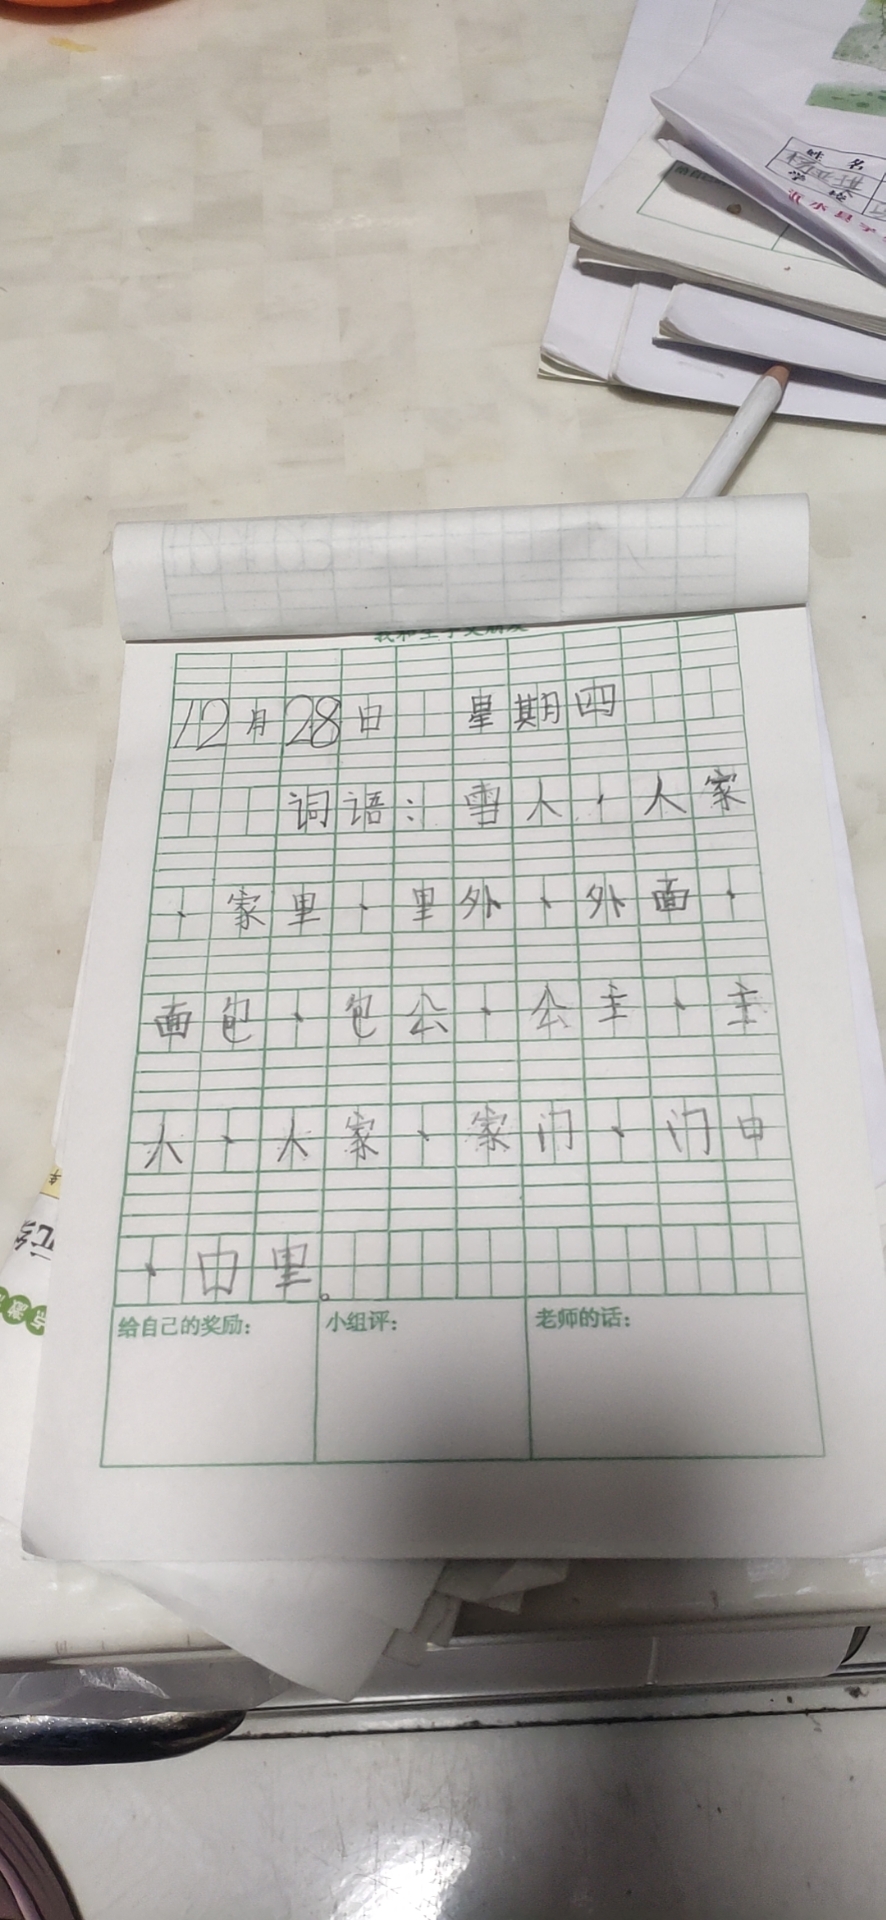 姓名
学校
沂水县
12月28日 星期四
词语：雪人、人家
、家里、里外、外面、
面包、包公、公主、主
人、人家、家门、门中
、中里。
给自己的奖励：
小组评：
老师的话：